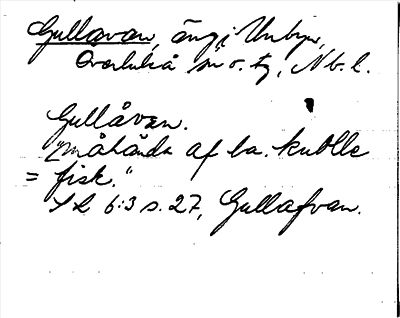 Gullavan, äng i Unbyn,
Överluleå sn o. tg, Nb. l.
Gullåvan.
"måhända af la. kuolle
= fisk."
SL 6:3 s. 27, Gullafvan.